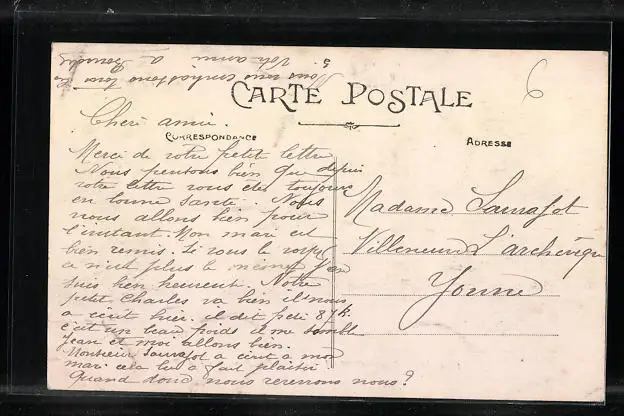 CARTE POSTALE
CORRESPONDANCE
ADRESSE
6
Cheri amie.
Merci de votre petit lettre
Nous pensons bien que depuis
votre lettre vous êtes toujours
en bonne santé. Nous
nous allons bien pour
l'instant. Mon mari est
bien remis. Si vous le
ce n'est plus le même J'en
suis bien heureuse. Notre
petit Charles va bien il nous
a écrit hier. il dit 87k.
c'est un beau poids il me semble
Jean et moi allons bien.
Monsieur Sauvajot a écrit a mon
mari cela lui a fait plaisir
Quand donc nous reverrons nous?
Nous vous embrassons tous les
5. Votre amie a
Madame Sauvajot
Villeneuve L'archevêque
Yonne